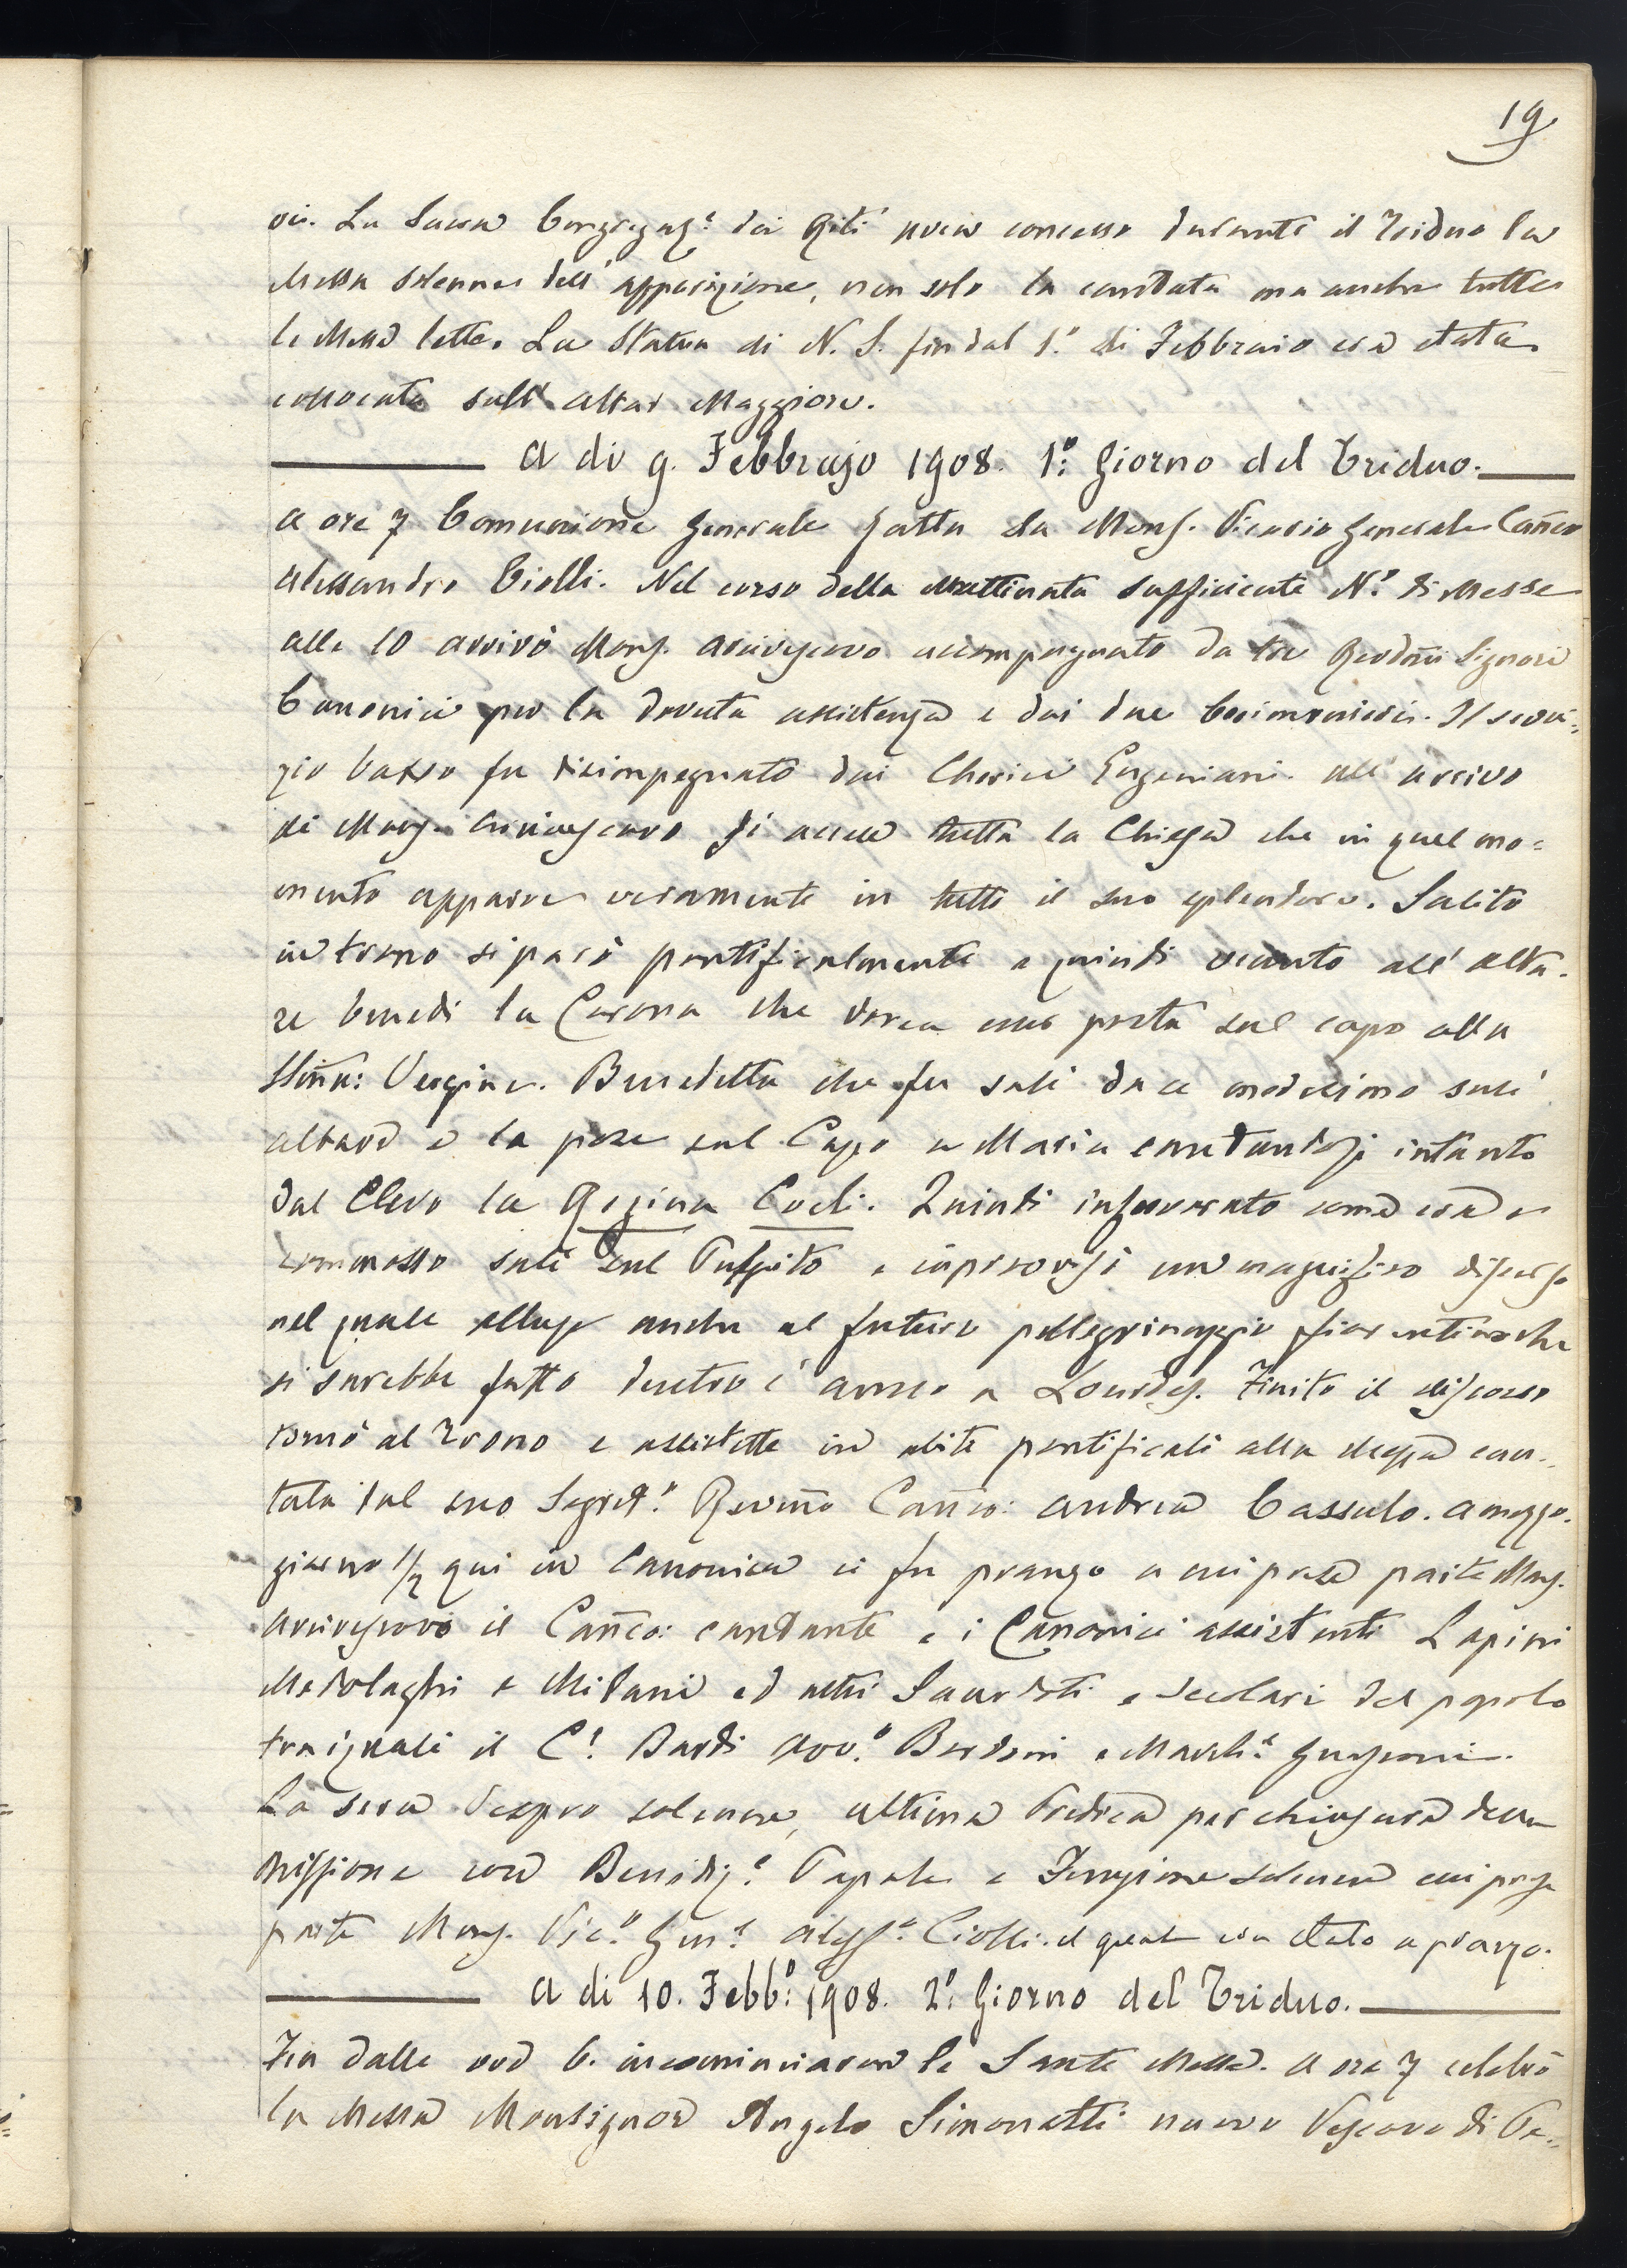 19
vii. La Sacra Congregaz.e dei Riti avea concesso durante il Triduo la
Messa solenne dell'apparizione, non solo la cantata ma anche tutte
le Messe lette. La Statua di N. S. fin dal 1.o di Febbraio era stata
collocata sull'altar Maggiore.
A di 9. Febbrajo 1908. 1.o Giorno del Triduo.
A ore 7 Comunione generale fatta da Mons. Vicario generale Canco
Alessandro Ciolli. Nel corso della mattinata sufficiente N.o di Messe
alle 10 arrivò Mons. Arcivescovo accompagnato da tre Revdmi Signori
Canonici per la dovuta assistenza e dai due Cerimonieri. Il servi=
zio basso fu disimpegnato dai Cherici Eugeniani. All'arrivo
di Mons. Arcivescovo si accese tutta la Chiesa che in quel mo=
mento apparve veramente in tutto il suo splendore. Salito
in trono si parò pontificalmente e quindi venuto all'alta=
re benedì la Corona che dovea esser posta sul capo alla
SSma: Vergine. Benedetta che fu salì da se medesimo sull'
altare e la pose sul Capo a Maria cantandosi intanto
dal Clero la Regina Coeli. Quindi infervorato come era e
commosso salì sul Pulpito e improvisò un magnifico discorso
nel quale alluse anche al futuro pellegrinaggio fiorentino che
si sarebbe fatto dentro l'anno a Lourdes. Finito il discorso
tornò al Trono e assistette in abiti pontificali alla Messa can=
tata dal suo Segret.o Revmo Canco: Andrea Cassulo. A mezzo=
giorno 1/2 qui in Canonica ci fu pranzo a cui prese parte Mons.
Arcivescovo il Canco: cantante e i Canonici assistenti Lapini
Medolaghi e Milani ed altri Sacerdoti e Secolari del popolo
tra i quali il C.e Bardi Avv.o e March.e
La sera Vespro solenne, ultima Predica per chiusura della
Missione con Benediz.e Papale e Funzione solenne cui prese
parte Mons. Vic.o Gen.e Aless.o Ciolli il quale era stato a pranzo.
A di 10. Febb.o 1908. 2.o Giorno del Triduo.
Fin dalle ore 6. incominciaron le Sante Messe. A ore 7 celebrò
la Messa Monsignor Angelo Simonetti nuovo Vescovo di Pe=